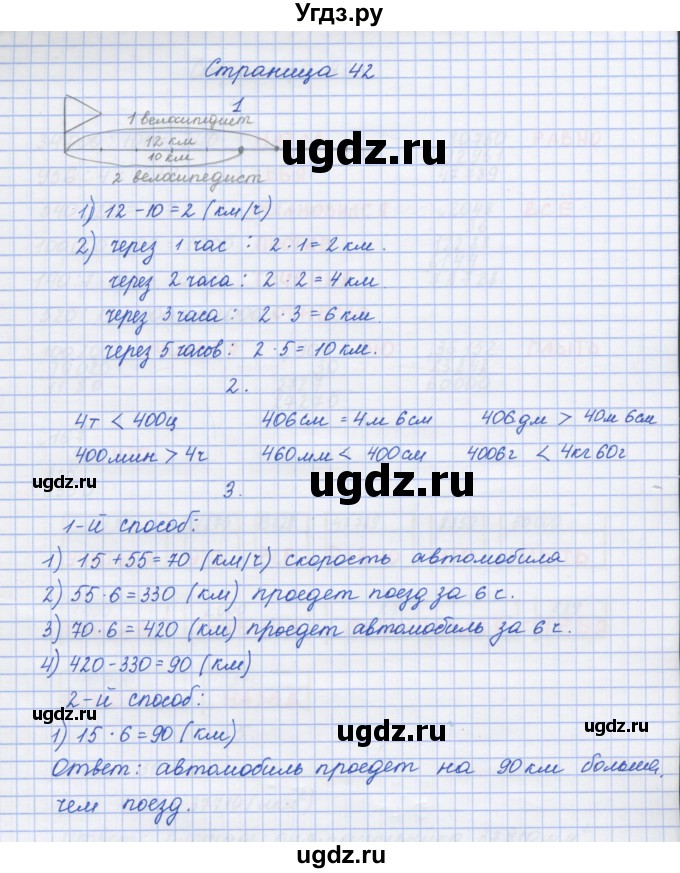 Угдз.ру
Страница 42
1
1 велосипедист
12 км
10 км
2 велосипедист
ugdz.ru
1) 12 - 10 = 2 (км/ч)
2) через 1 час : 2 · 1 = 2 км.
через 2 часа : 2 · 2 = 4 км.
через 3 часа : 2 · 3 = 6 км.
через 5 часов : 2 · 5 = 10 км.
2.
4т < 400ц 406см = 4м 6см 406дм > 40м 6см
400мин > 4ч 460мм < 400см 4006г < 4кг 60г
ugdz.ru ugdz.ru ugdz.ru
3.
1-й способ:
1) 15 + 55 = 70 (км/ч) скорость автомобила
2) 55 · 6 = 330 (км) проедет поезд за 6 с.
3) 70 · 6 = 420 (км) проедет автомобиль за 6 ч.
4) 420 - 330 = 90 (км)
2-й способ:
ugdz.ru ugdz.ru ugdz.ru
1) 15 · 6 = 90 (км)
Ответ: автомобиль проедет на 90 км больше,
чем поезд.
ugdz.ru